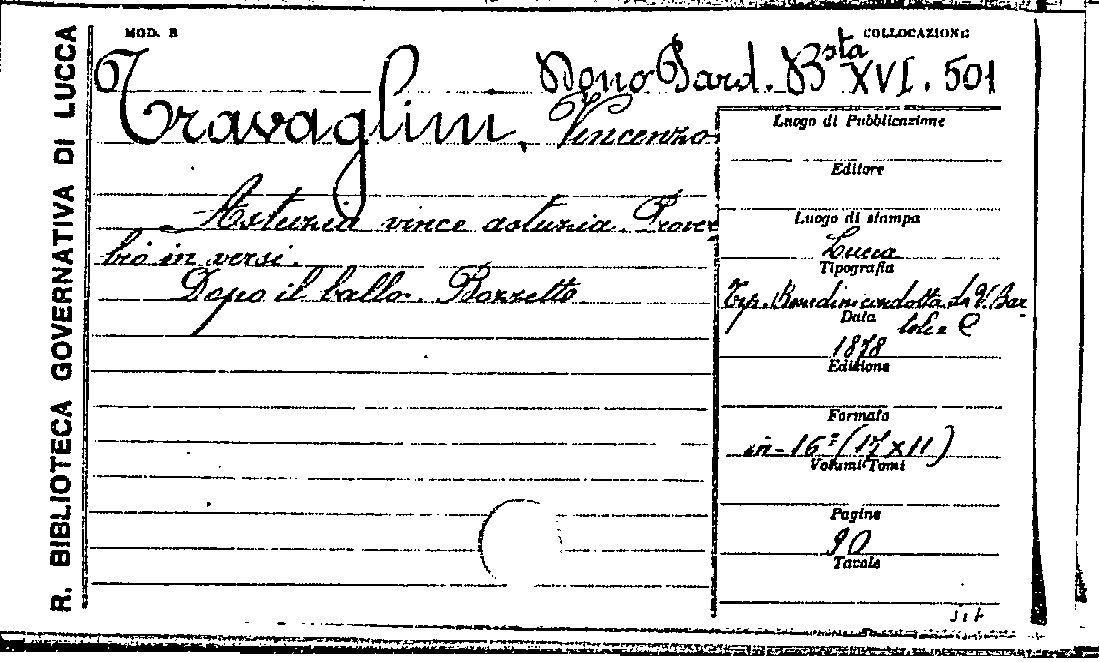 R. BIBLIOTECA GOVERNATIVA DI LUCCA
MOD. B
COLLOCAZIONE
Dono Sard. Bsta XVI. 501
Travaglini, Vincenzo
Astuzia vince astuzia. Prover
bio in versi.
Dopo il ballo. Bozzetto
Luogo di Pubblicazione
Editore
Luogo di stampa
Lucca
Tipografia
Tip. Benedini condotta da V. Bar
Data
1878
Edizione
Formato
in-16° (17x11)
Volumi Tomi
Pagine
90
Tavole